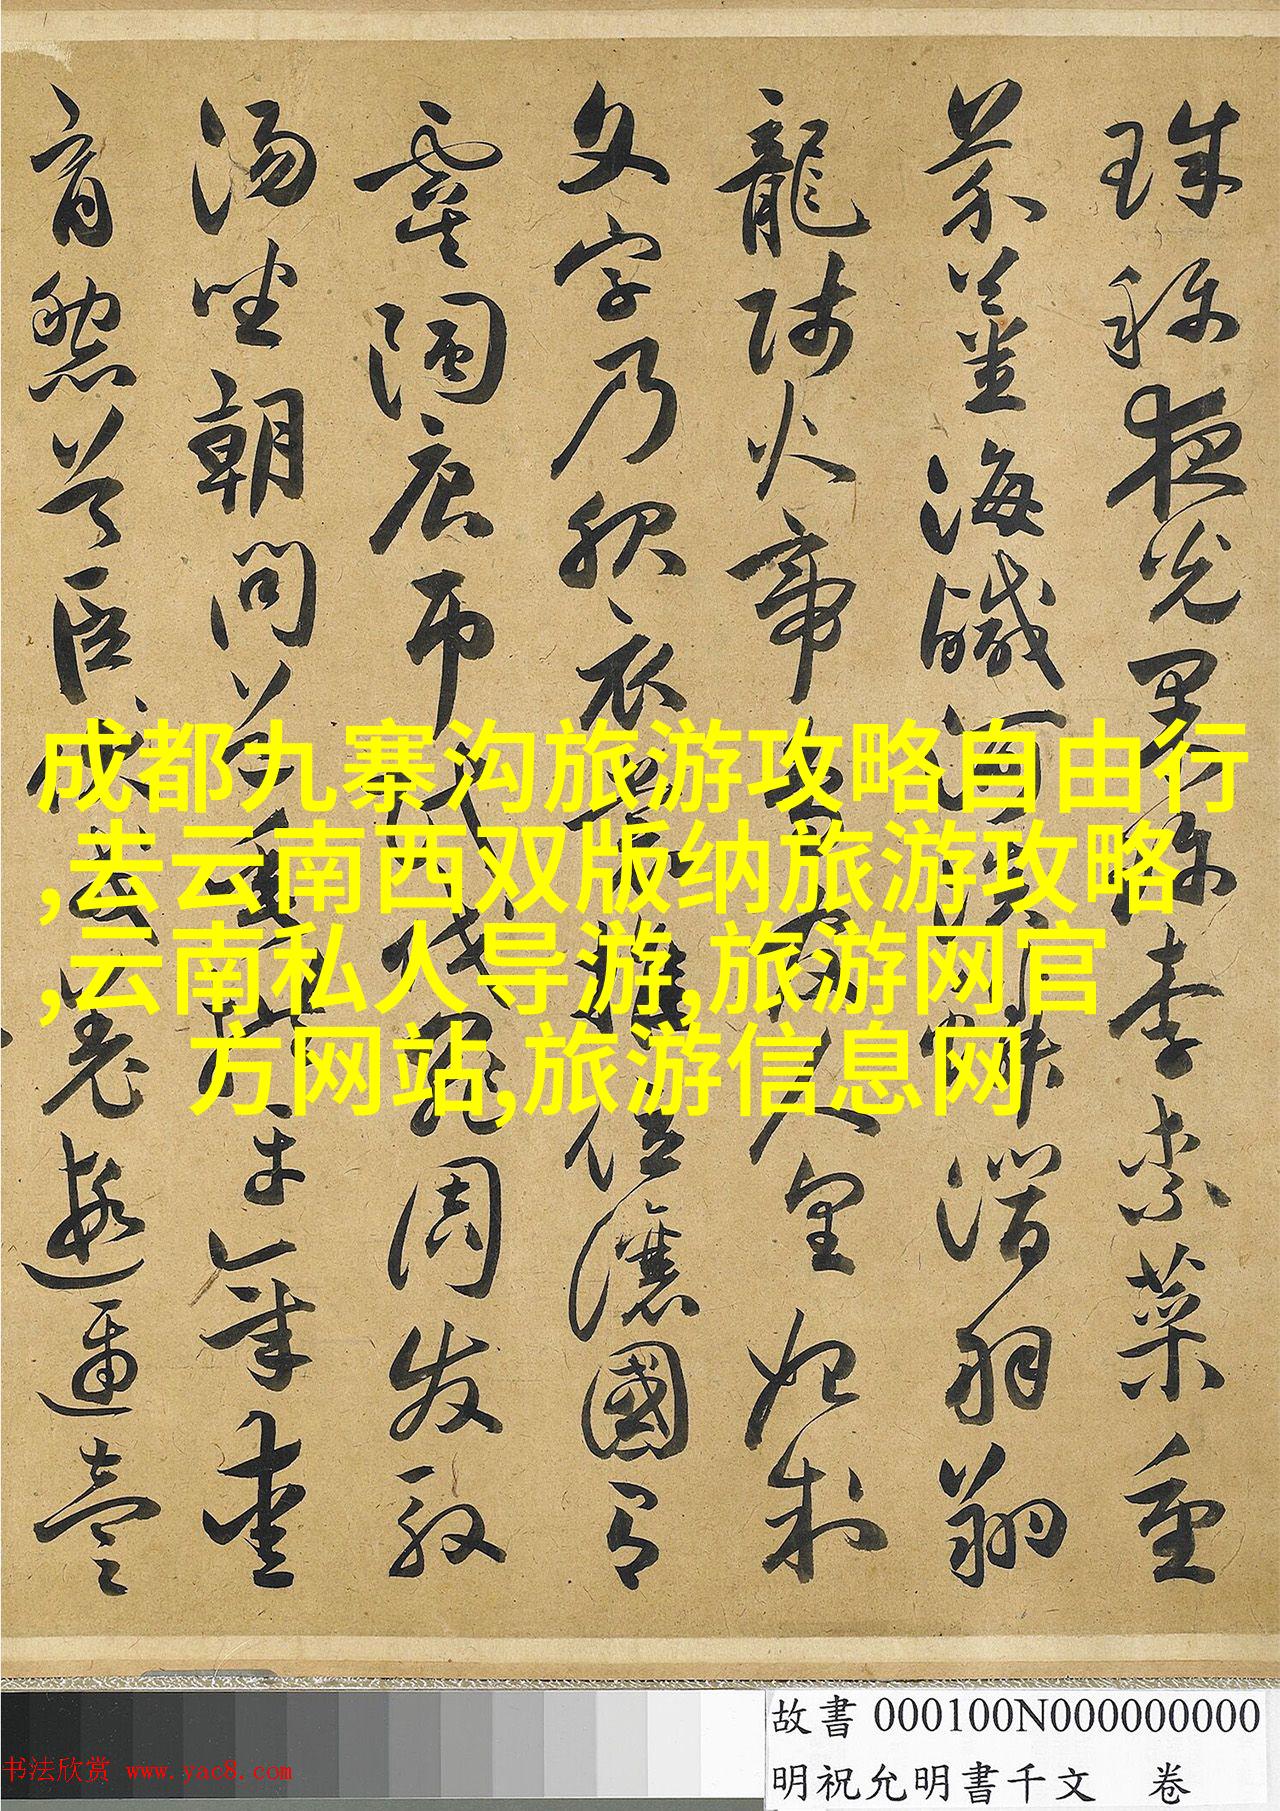 珠稱夜光果珍李柰菜重
芥薑海鹹河淡鱗潛羽翔
龍師火帝鳥官人皇始制
文字乃服衣裳推位讓國有
虞陶唐弔民伐罪周發殷
湯坐朝問道垂拱平章愛
育黎首臣伏戎羌遐邇壹
成都九寨沟旅游攻略自由行
,去云南西双版纳旅游攻略
,云南私人导游,旅游网官
方网站,旅游信息网
故書 000100N000000000
明祝允明書千文 卷
书法欣赏 www.yac8.com